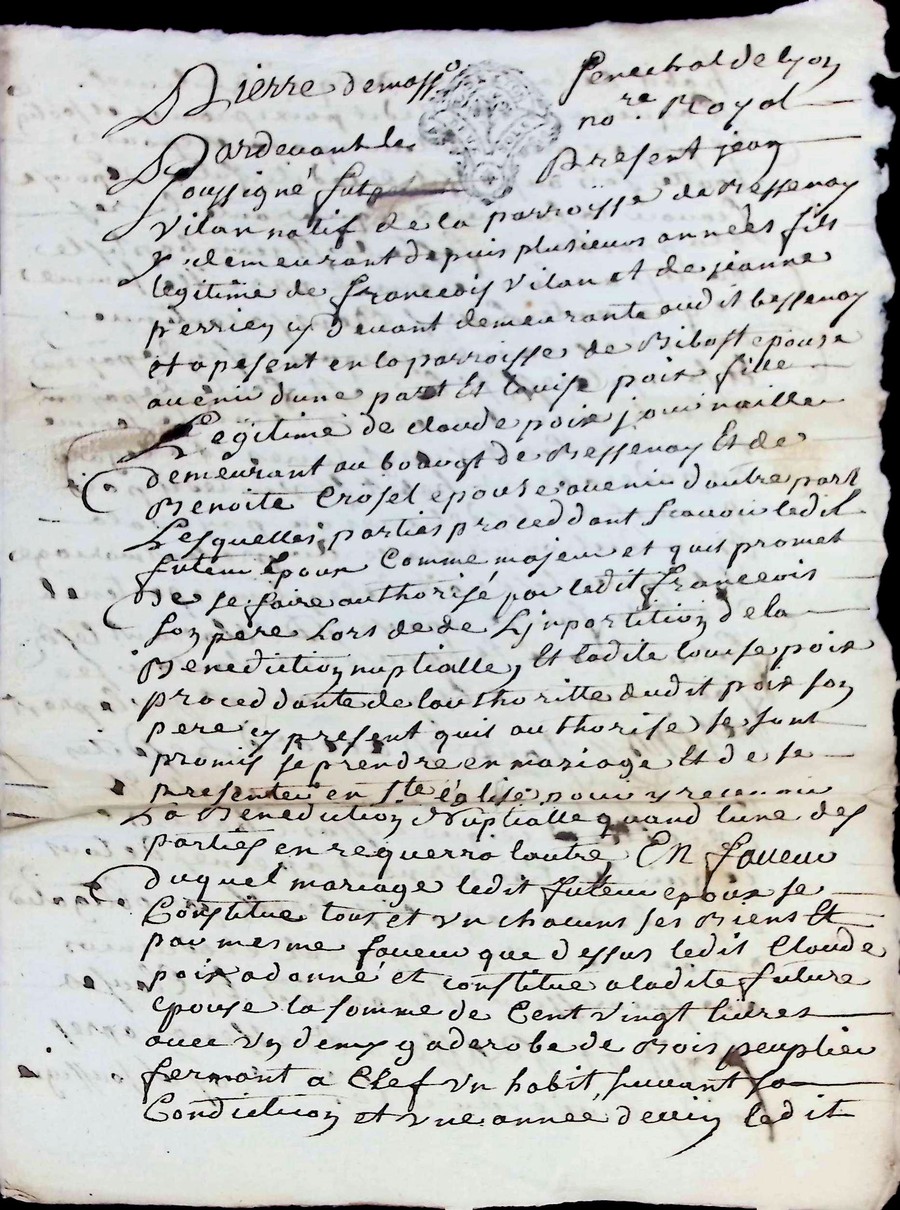 Pierre demasso Senechal de lyon
Pardevant le nore Royal
soussigné fut present jean
vilan natif de la parroisse de Bessenay
y demeurant depuis plusieurs années fils
legitime de francois vilan et de jeanne
perrien cy devant demeurante audit bessenay
et apesent en la parroisse de Ribost epoux
avenir dune part Et louise poix fille
Legitime de claude poix journaille
demeurant au bourgt de Bessenay Et de
Benoite Crosel epouse avenir dautre part
Lesquelles parties proceddant scavoir ledit
futeur Epoux Comme majeur et quis promet
de se faire authorisé par ledit francois
son pere Lors de de Linpartition de la
Benediction nuptialle, Et ladite louise poix
proceddante de lauthoritte dudit poix son
pere cy present quis authorise se sont
promis se prendre en mariage Et de se
presenter en ste églisé pour y recevoir
La Benediction Nuptialle quand lune des
parties en requerra lautre, En faveur
duquel mariage ledit futeur epoux se
Constitue tous et un chacuns ses Biens Et
par mesme faveur que dessus ledit Claude
poix a donné et constitué a ladite future
epouse la somme de Cent vingt livres
avec un demy gaderobe de Bois peuplier
fermant a Clef un habit suivant sa
Condiction et une année devin ledit